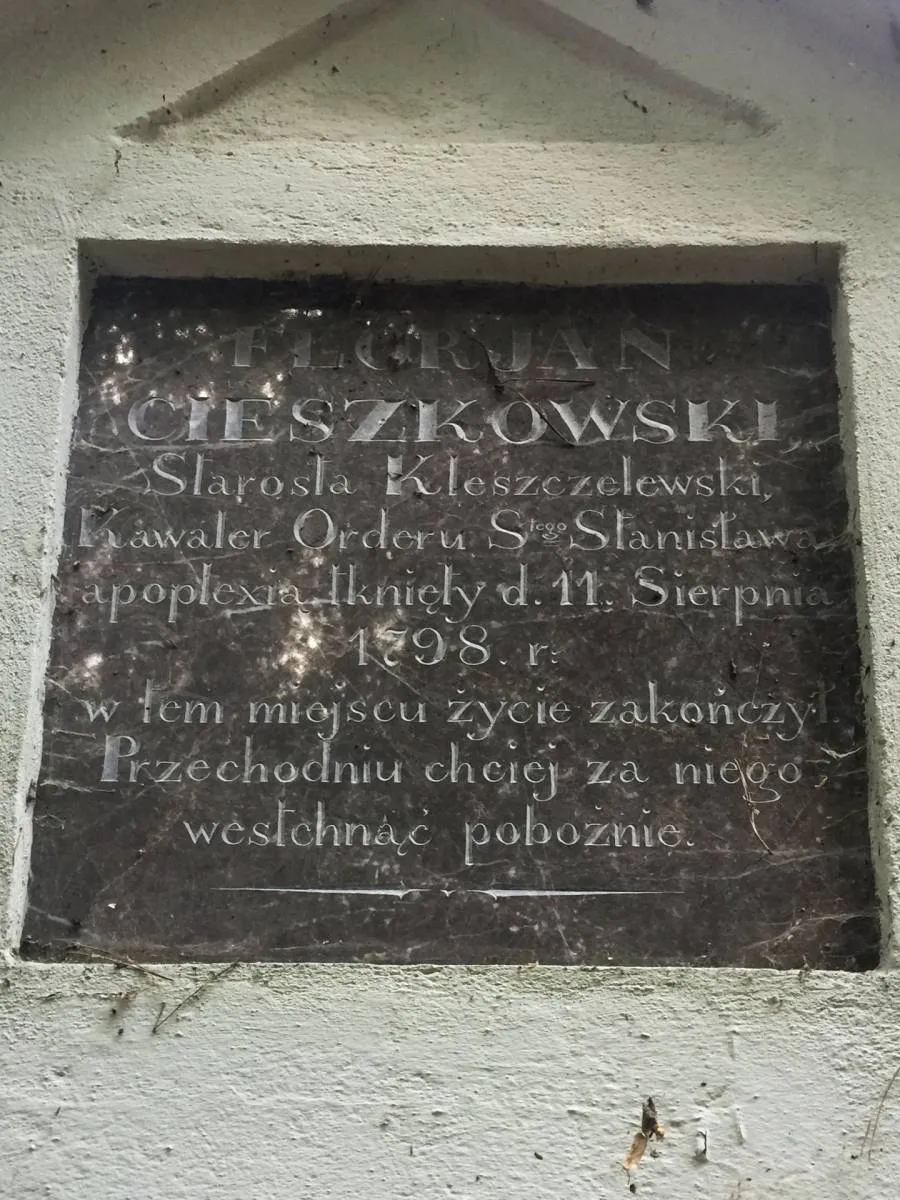 FLORJAN
CIESZKOWSKI
Starosta Kleszczelewski,
Kawaler Orderu Stego Stanisława
apoplexią tknięty d. 11. Sierpnia
1798. r.
w tem miejscu życie zakończył.
Przechodniu chciej za niego
westchnąć pobożnie.